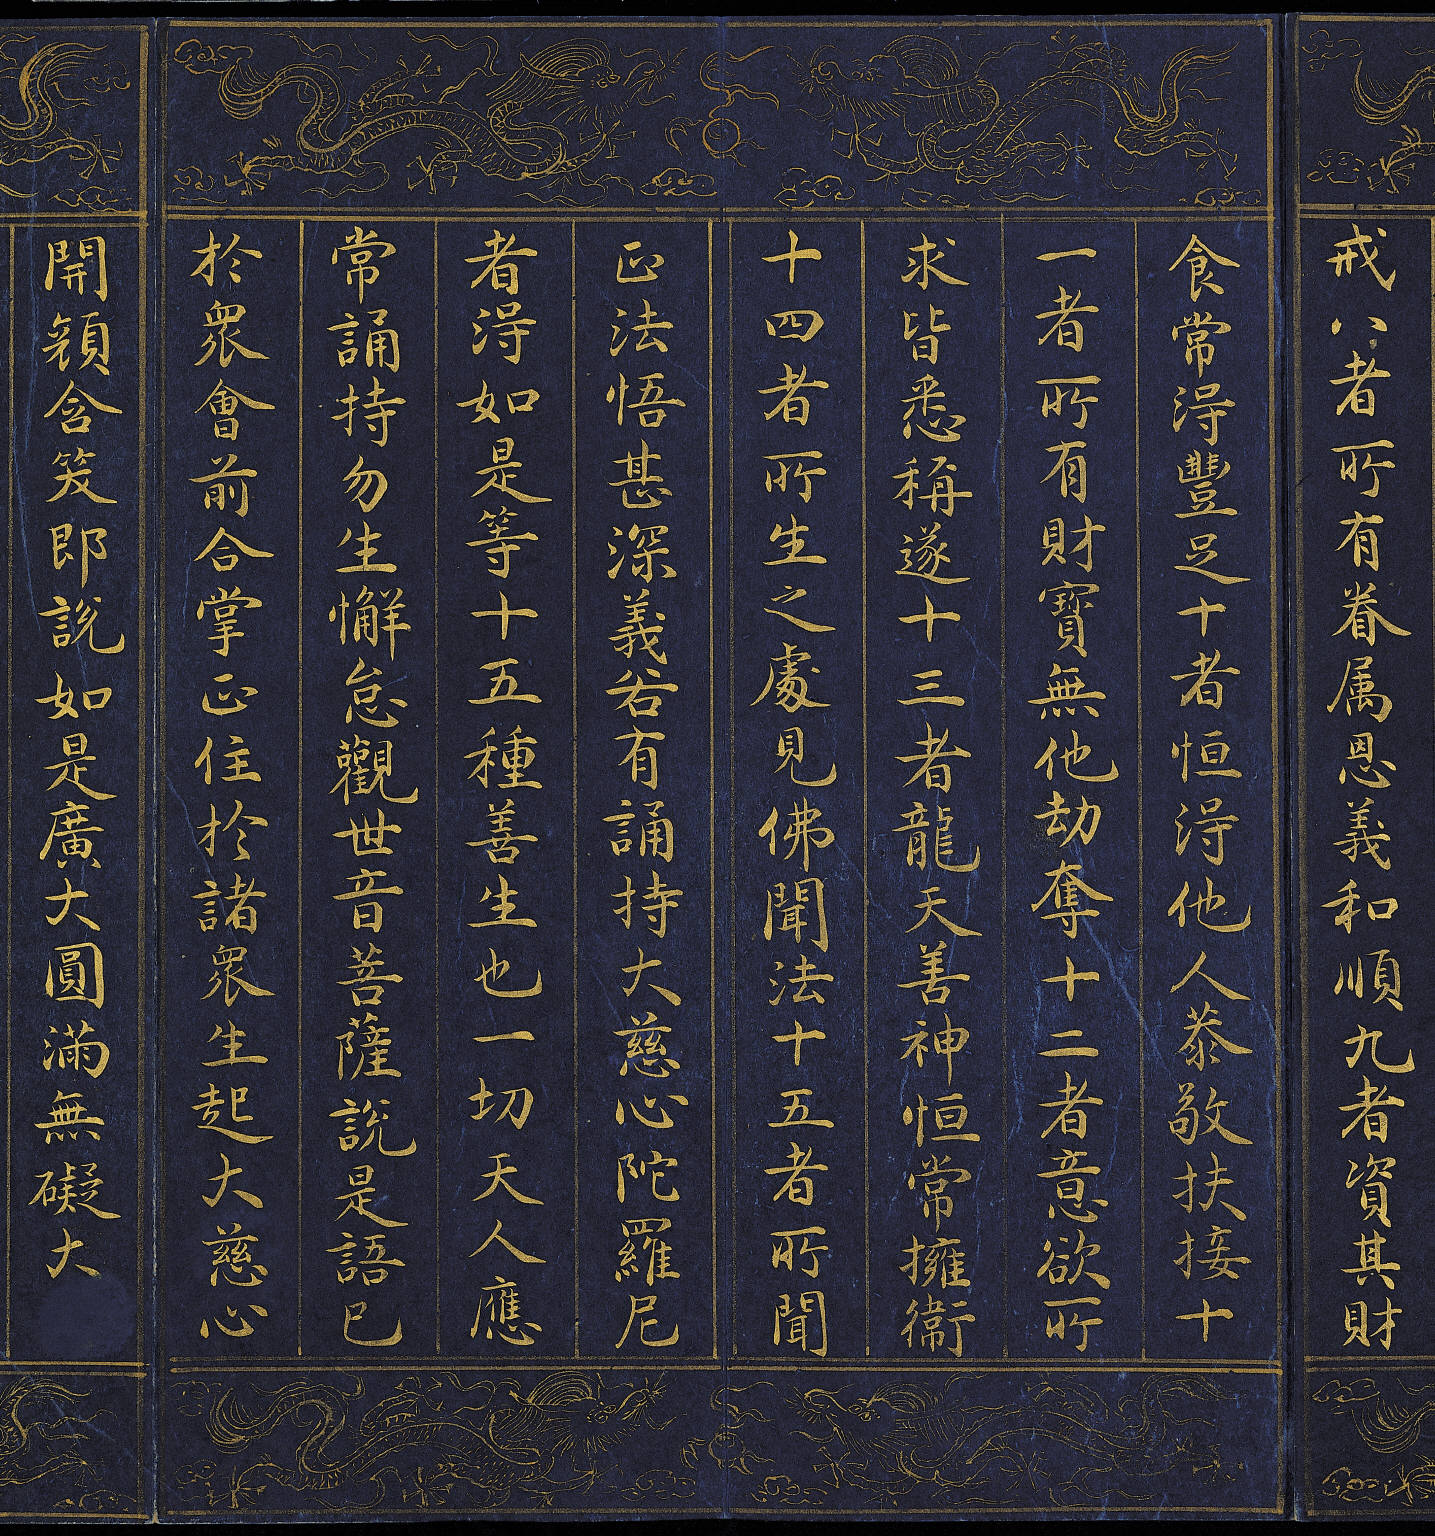 戒八者所有眷属恩義和順九者資其財
食常淂豐足十者恒淂他人恭敬扶接十
一者所有財寶無他劫奪十二者意欲所
求皆悉稱遂十三者龍天善神恒常擁衛
十四者所生之處見佛聞法十五者所聞
正法悟甚深義若有誦持大慈心陀羅尼
者淂如是等十五種善生也一切天人應
常誦持勿生懈怠觀世音菩薩說是語已
於衆會前合掌正住於諸衆生起大慈心
開顔含笑即說如是廣大圓滿無礙大